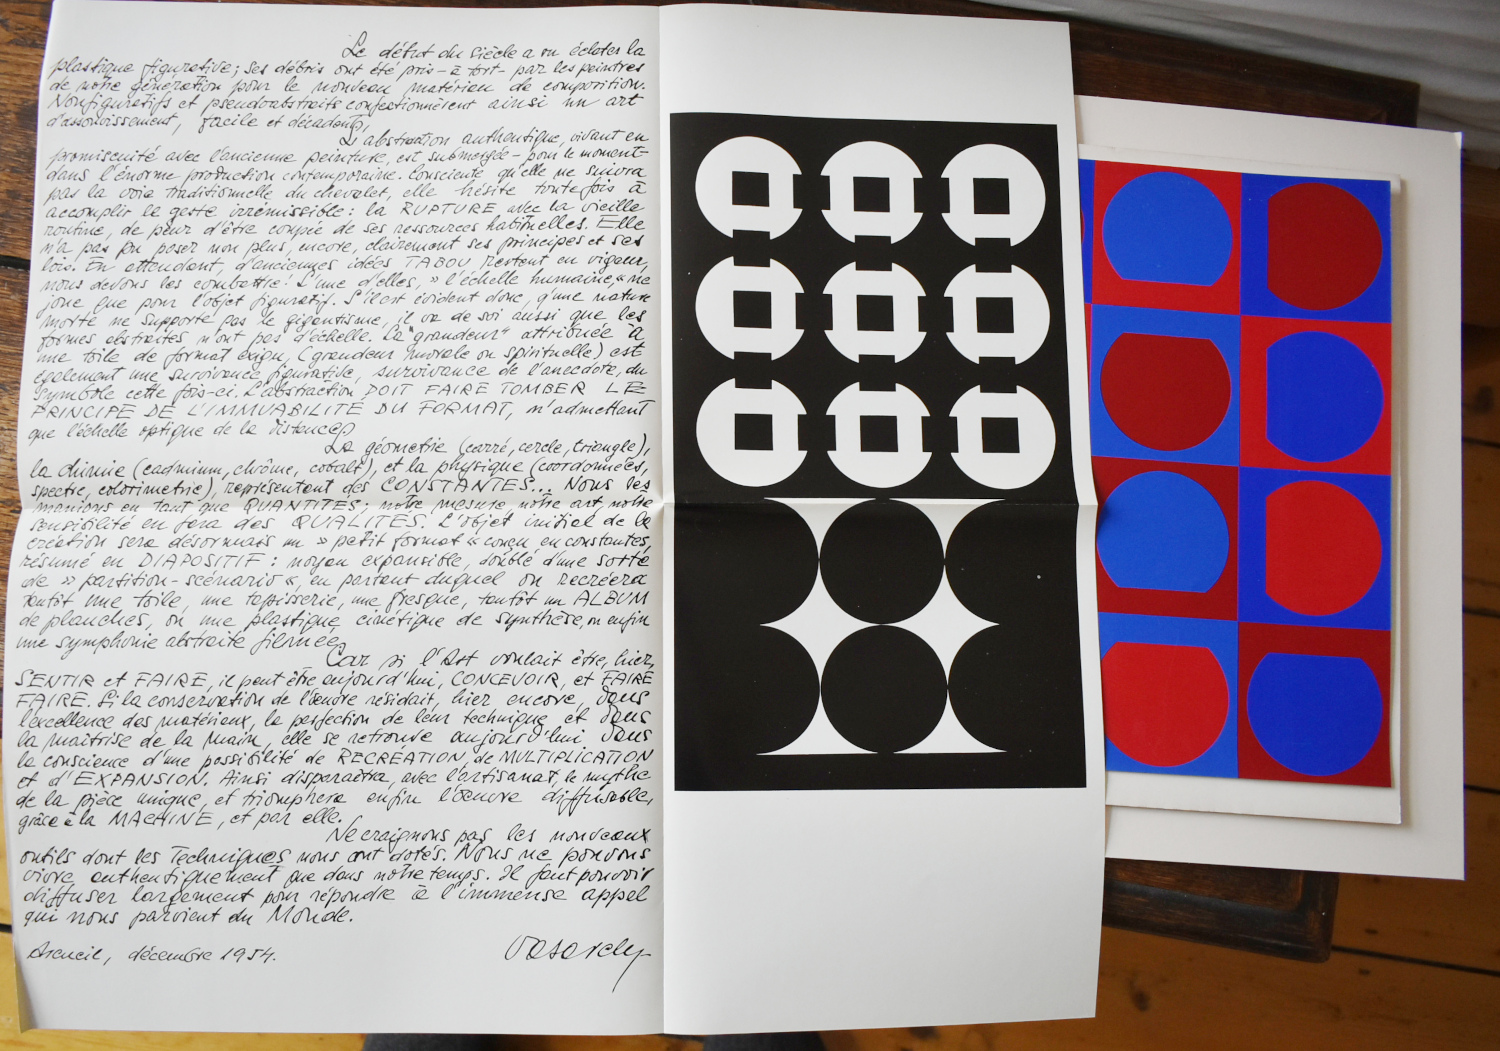 Le début du siècle a vu éclater la
plastique figurative; ses débris ont été pris - à tort - par les peintres
de notre génération pour le nouveau matériau de composition.
Nonfiguratifs et pseudoabstraits confectionnèrent ainsi un art
d'assouvissement, facile et décadent.
L'abstraction authentique, vivant en
promiscuité avec l'ancienne peinture, est submergée - pour le moment -
dans l'énorme production contemporaine. Consciente qu'elle ne suivra
pas la voie traditionnelle du chevalet, elle hésite toutefois à
accomplir le geste irrémissible: la RUPTURE avec la vieille
routine, de peur d'être coupée de ses ressources habituelles. Elle
n'a pas pu poser non plus, encore, clairement ses principes et ses
lois. En attendant, d'anciennes idées TABOU restent en vigueur,
nous devons les combattre! L'une d'elles, »l'échelle humaine,« ne
joue que pour l'objet figuratif. S'il est évident donc, qu'une nature
morte ne supporte pas le gigantisme, il va de soi aussi que les
formes abstraites n'ont pas d'échelle. La "grandeur" attribuée à
une toile de format exigu, (grandeur morale ou spirituelle) est
également une survivance figurative, survivance de l'anecdote, du
symbole cette fois-ci. L'abstraction DOIT FAIRE TOMBER LE
PRINCIPE DE L'IMMUABILITÉ DU FORMAT, n'admettant
que l'échelle optique de la distance.
La géometrie (carré, cercle, triangle),
la chimie (cadmium, chrôme, cobalt), et la physique (coordonnées,
spectre, colorimetrie), représentent des CONSTANTES... Nous les
manions en tant que QUANTITÉS; notre mesure, notre art, notre
sensibilité en fera des QUALITÉS. L'objet initial de la
création sera désormais un »petit format« conçu en constantes,
résumé en DIAPOSITIF: noyau expansible, doublé d'une sorte
de »partition-scénario«, en partant duquel on recréera
tantôt une toile, une tapisserie, une fresque, tantôt un ALBUM
de planches, ou une plastique cinétique de synthèse, ou enfin
une symphonie abstraite filmée.
Car si l'Art voulait être, hier,
SENTIR et FAIRE, il peut être aujourd'hui, CONCEVOIR, et FAIRE
FAIRE. Si la conservation de l'œuvre résidait, hier encore, dans
l'excellence des matériaux, la perfection de leur technique et dans
la maîtrise de la main, elle se retrouve aujourd'hui dans
la conscience d'une possibilité de RECRÉATION, de MULTIPLICATION
et d'EXPANSION. Ainsi disparaîtra, avec l'artisanat, le mythe
de la pièce unique, et triomphera enfin l'œuvre diffusable,
grâce à la MACHINE, et par elle.
Ne craignons pas les nouveaux
outils dont les Techniques nous ont dotés. Nous ne pouvons
vivre authentiquement que dans notre temps. Il faut pouvoir
diffuser largement pour répondre à l'immense appel
qui nous parvient du Monde.
Arcueil, décembre 1954.
Vasarely